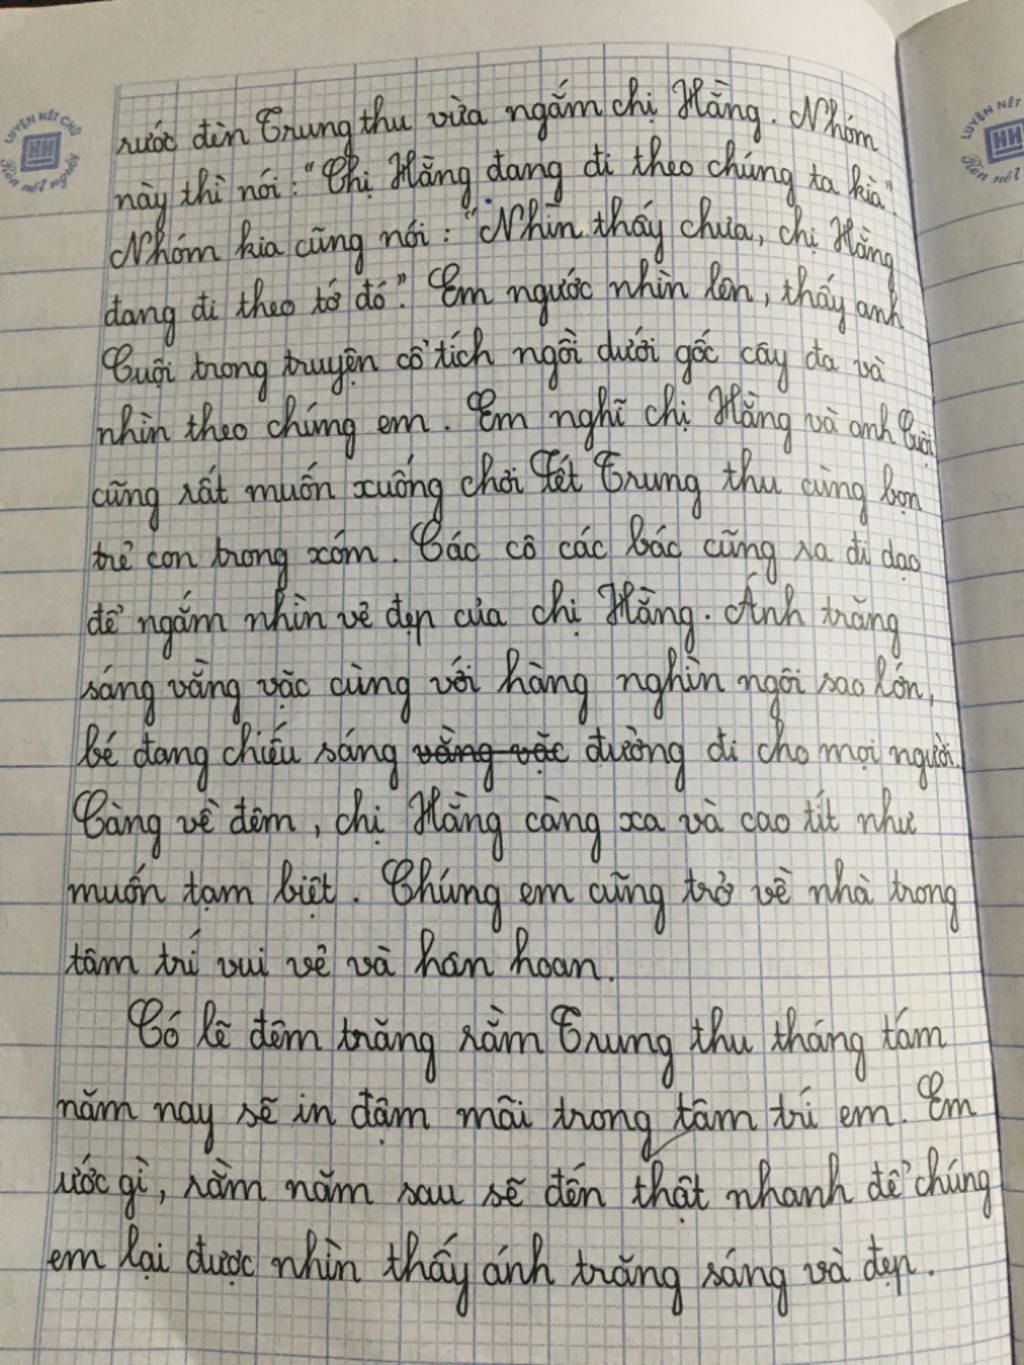 rước đèn Trung thu vừa ngắm chị Hằng. Nhóm
này thì nói: "Chị Hằng đang đi theo chúng ta kìa".
Nhóm kia cũng nói: "Nhìn thấy chưa, chị Hằng
đang đi theo tớ đó". Em ngước nhìn lên, thấy anh
Cuội trong truyện cổ tích ngồi dưới gốc cây đa và
nhìn theo chúng em. Em nghĩ chị Hằng và anh Cuội
cũng rất muốn xuống chơi Tết Trung thu cùng bọn
trẻ con trong xóm. Các cô các bác cũng ra đi dạo
để ngắm nhìn vẻ đẹp của chị Hằng. Ánh trăng
sáng vằng vặc cùng với hàng nghìn ngôi sao lớn,
bé đang chiếu sáng vằng vặc đường đi cho mọi người.
Càng về đêm, chị Hằng càng xa và cao tít như
muốn tạm biệt. Chúng em cũng trở về nhà trong
tâm trí vui vẻ và hân hoan.
Có lẽ đêm trăng rằm Trung thu tháng tám
năm nay sẽ in đậm mãi trong tâm trí em. Em
ước gì, rằm năm sau sẽ đến thật nhanh để chúng
em lại được nhìn thấy ánh trăng sáng và đẹp.
LUYỆN NÉT CHỮ
HH
Rèn nết người
LUYỆN NÉT
HH
Rèn nết